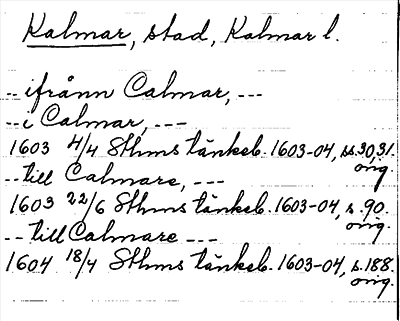 Kalmar, stad, Kalmar l.
-- ifrånn Calmar, ---
-- i Calmar, ---
1603 4/4 Sthms tänkeb. 1603-04, ss.30,31.
orig.
-- till Calmare, ---
1603 22/6 Sthms tänkeb. 1603-04, s.90.
orig.
-- till Calmare ---
1604 18/4 Sthms tänkeb. 1603-04, s.188.
orig.